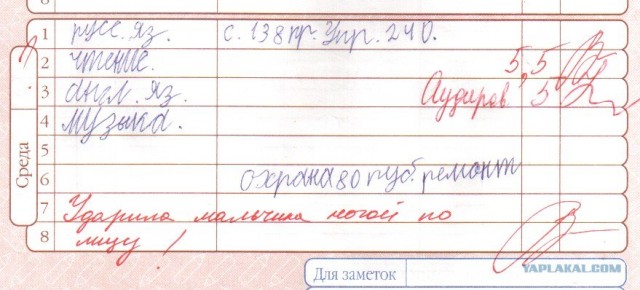 8
Среда
1 русс. яз. с. 138 пр. Упр. 240.
2 чтение. 5,5
3 англ. яз. Аудиров. 5
4 музыка.
5
6 охрана 80 руб. ремонт
7 Ударила мальчика ногой по
8 лицу!
Для заметок
YAPLAKAL.COM